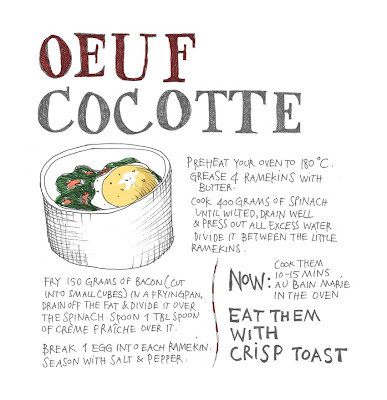 OEUF
COCOTTE
PREHEAT YOUR OVEN TO 180°C.
GREASE 4 RAMEKINS WITH
BUTTER.
COOK 400 GRAMS OF SPINACH
UNTIL WILTED, DRAIN WELL
& PRESS OUT ALL EXCESS WATER
DIVIDE IT BETWEEN THE LITTLE
RAMEKINS.
FRY 150 GRAMS OF BACON (CUT
INTO SMALL CUBES) IN A FRYINGPAN,
DRAIN OFF THE FAT & DIVIDE IT OVER
THE SPINACH. SPOON 1 TBL SPOON
OF CRÈME FRAÎCHE OVER IT.
BREAK 1 EGG INTO EACH RAMEKIN.
SEASON WITH SALT & PEPPER.
NOW:
COOK THEM
10-15 MINS
AU BAIN MARIE
IN THE OVEN
EAT THEM
WITH
CRISP TOAST